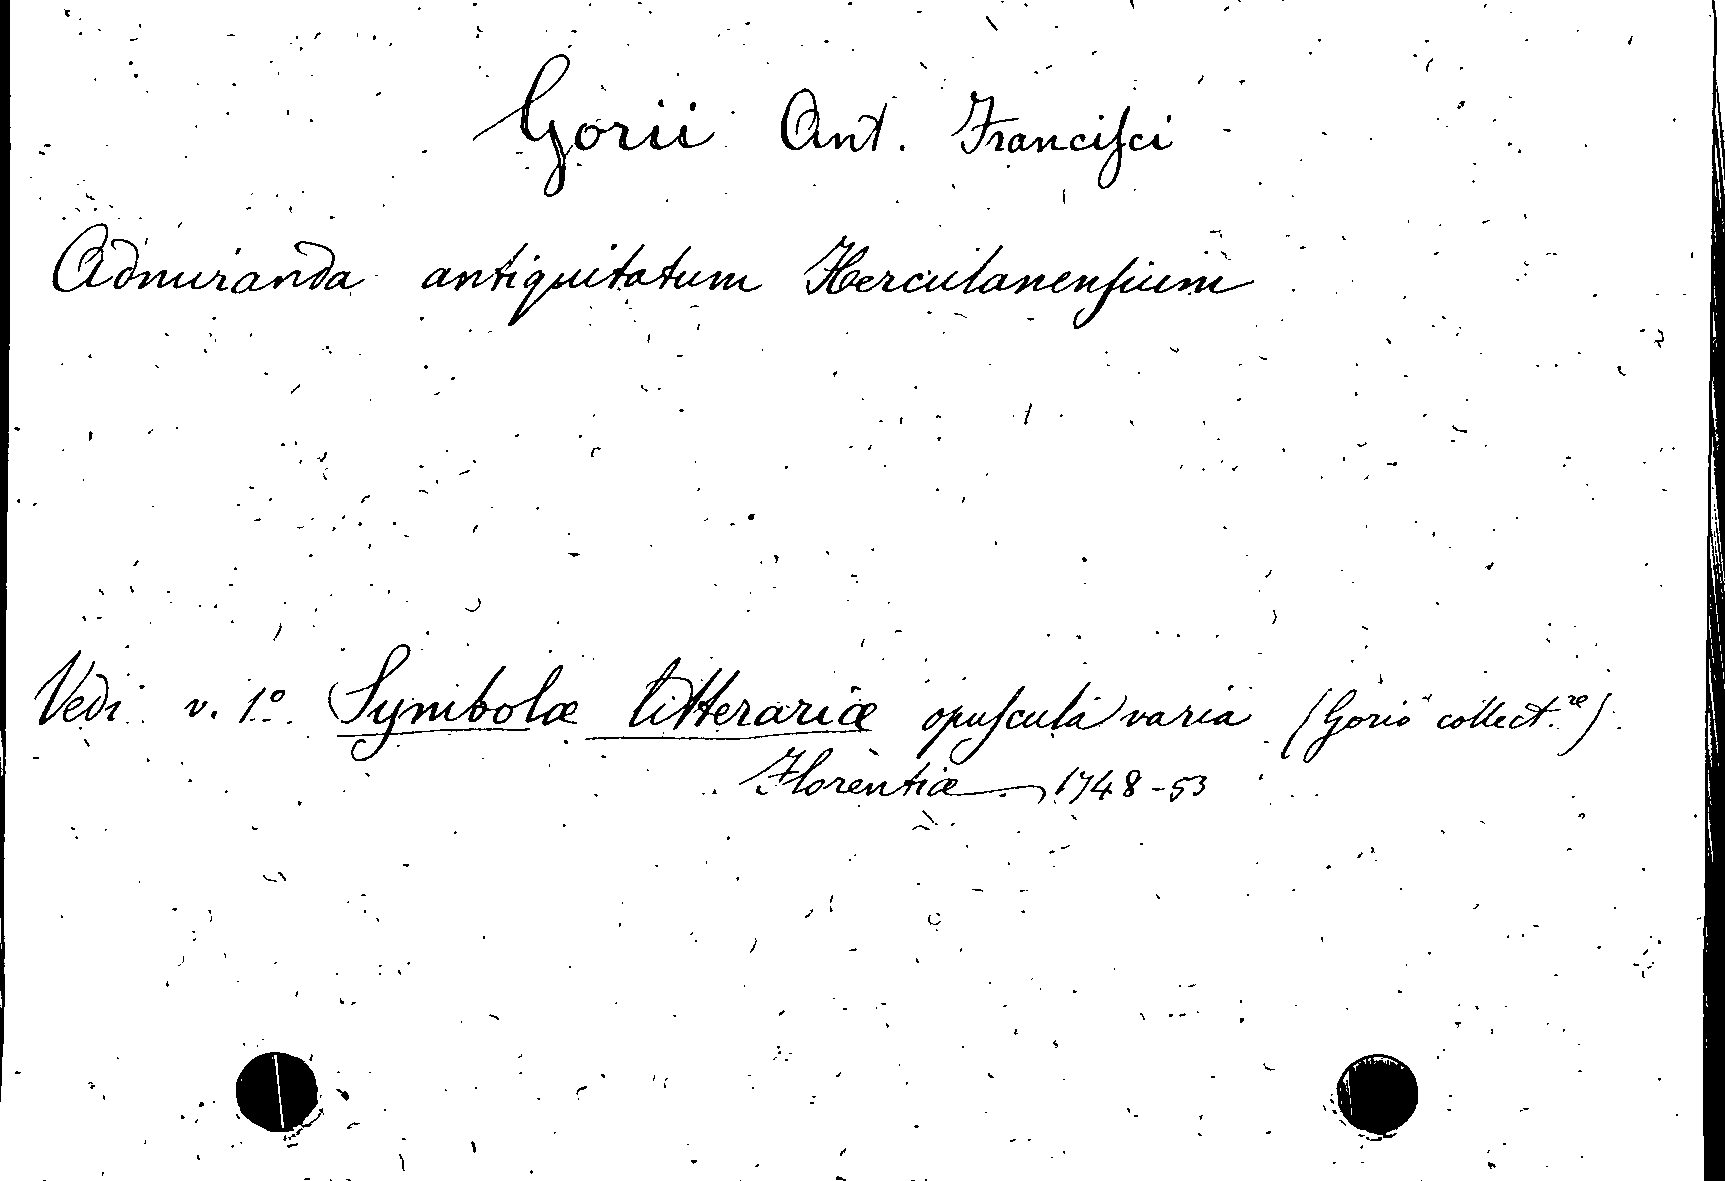 Gorii Ant. Franciſci
Admiranda antiquitatum Herculanenſium
Vedi v. 1º. Symbolæ litterariæ opuſcula varia (Gorio collect.re)
Florentiæ 1748-53